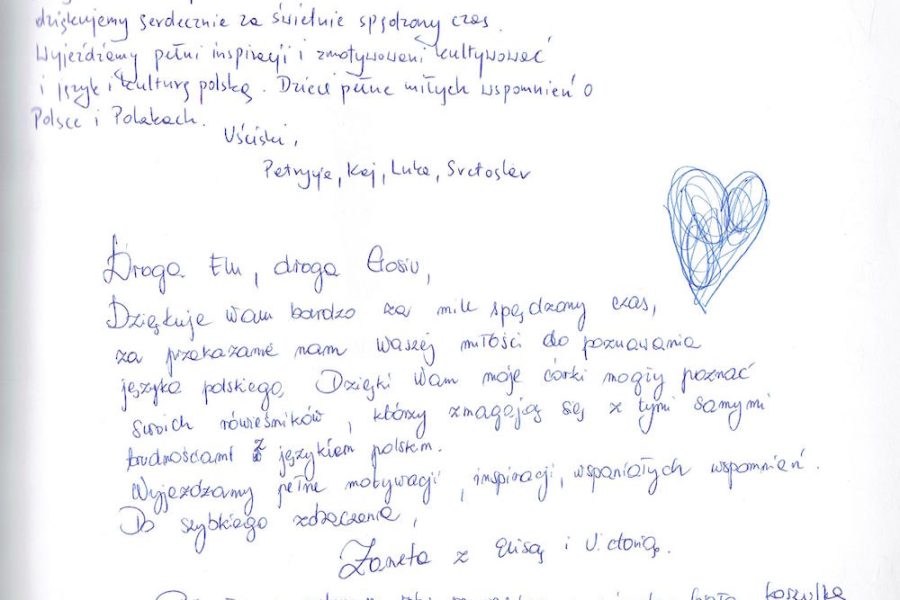 dziękujemy serdecznie za świetnie spędzony czas.
Wyjeżdżamy pełni inspiracji i zmotywowani kultywować
i język i kulturę polską. Dzieci pełne miłych wspomnień o
Polsce i Polakach.
Uściski,
Petryja, Kaj, Luka, Svetoslav
Droga Elu, droga Gosiu,
Dziękuje Wam bardzo za mile spędzony czas,
za przekazanie nam Waszej miłości do poznawania
języka polskiego. Dzięki Wam moje córki mogły poznać
swoich rówieśników, którzy zmagają się z tymi samymi
trudnościami z językiem polskim.
Wyjezdzamy pełne motywacji, inspiracji, wspaniałych wspomnień.
Do szybkiego zobaczenia,
Żaneta z Elisą i Victorią.
koszulka